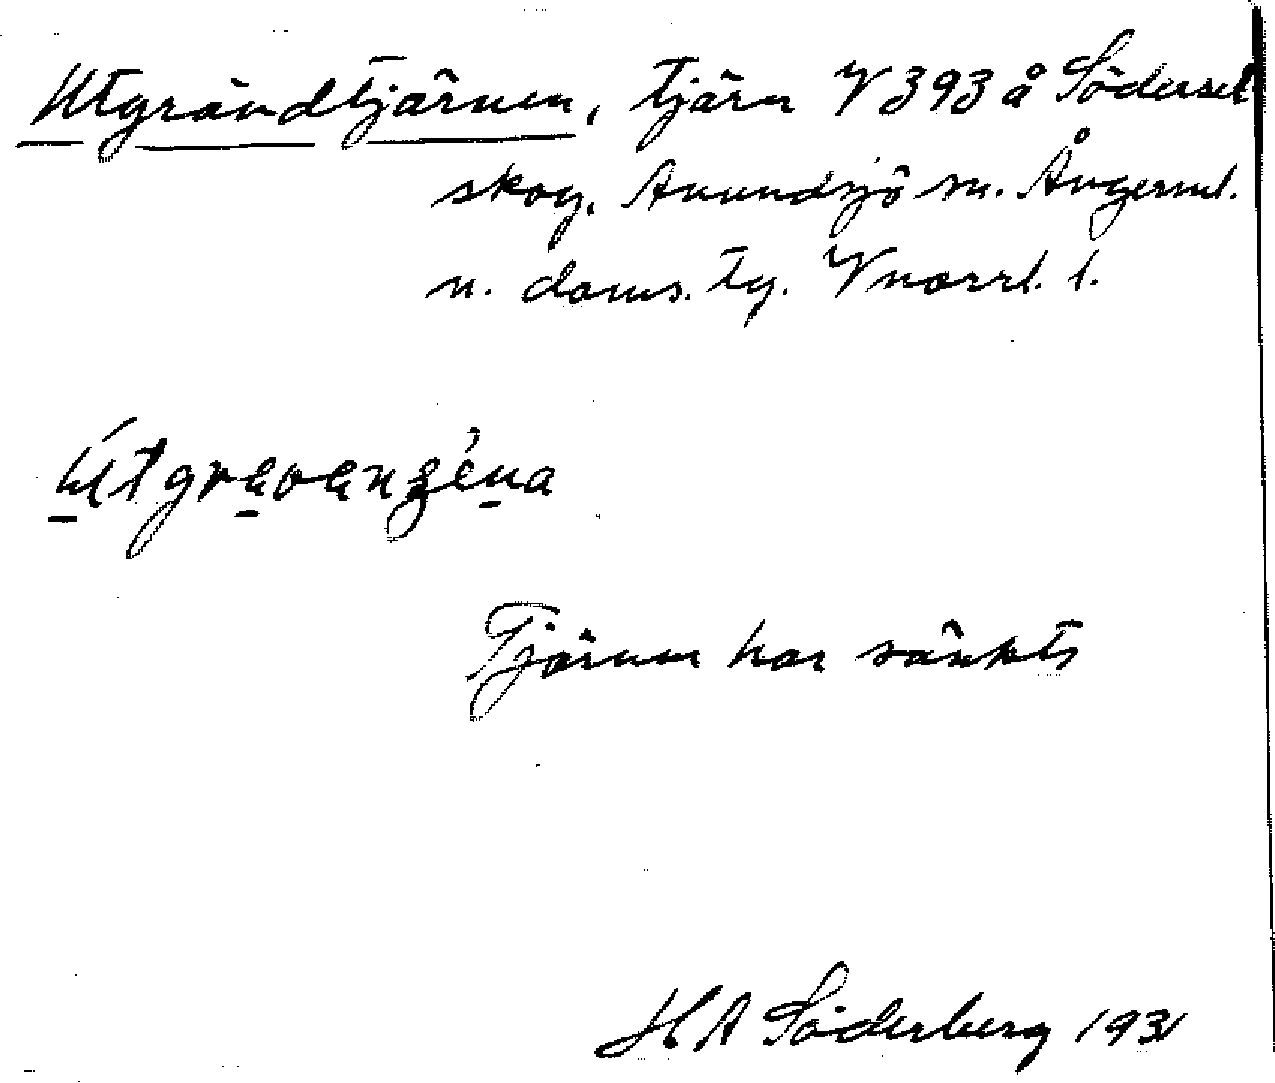 Utgrändtjärnen, tjärn V 393 å Södersel
skog, Anundsjö sn. Ångerml.
n. doms. tg. Vnorrl. l.
Tjärnen har sänkts
H A Söderberg 1931